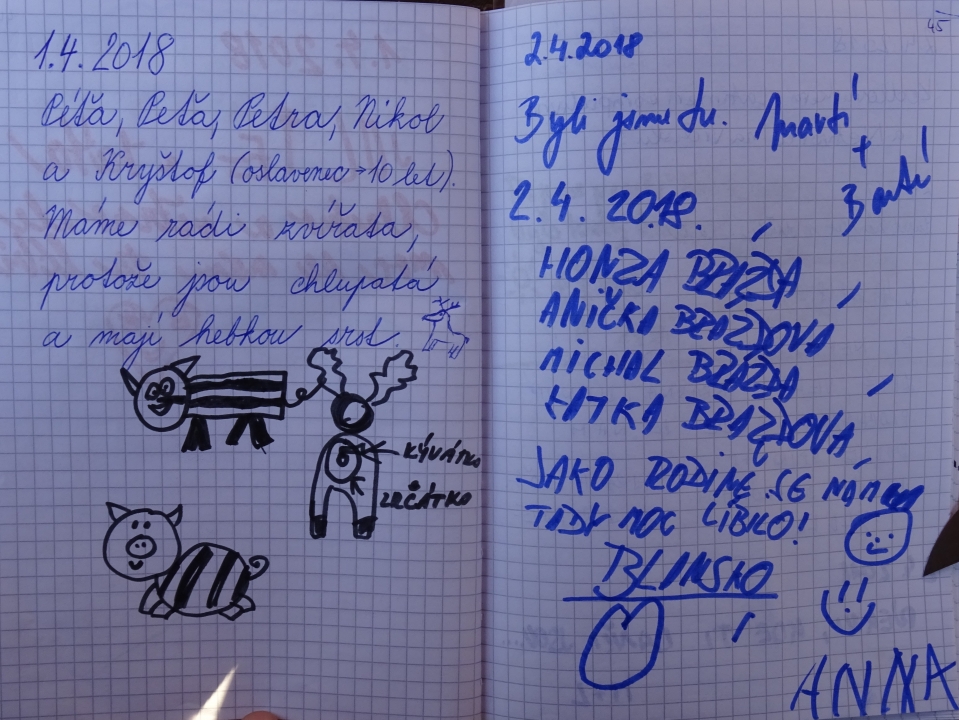 1.4.2018
Péťa, Peťa, Petra, Nikol
a Kryštof (oslavenec → 10 let).
Máme rádi zvířata,
protože jsou chlupatá
a mají hebkou srst.
KÝVÁTKO
ZRČÁTKO
45
2.4.2018
Byli jsme tu.
+
2.4.2018.
HONZA BRÁZDA
ANIČKA BRÁZDOVA
MICHAL BRÁZDA
KATKA BRÁZDOVÁ
JAKO RODINĚ SE NÁM
TADY MOC LÍBILO!
BLINSKO
ANNA